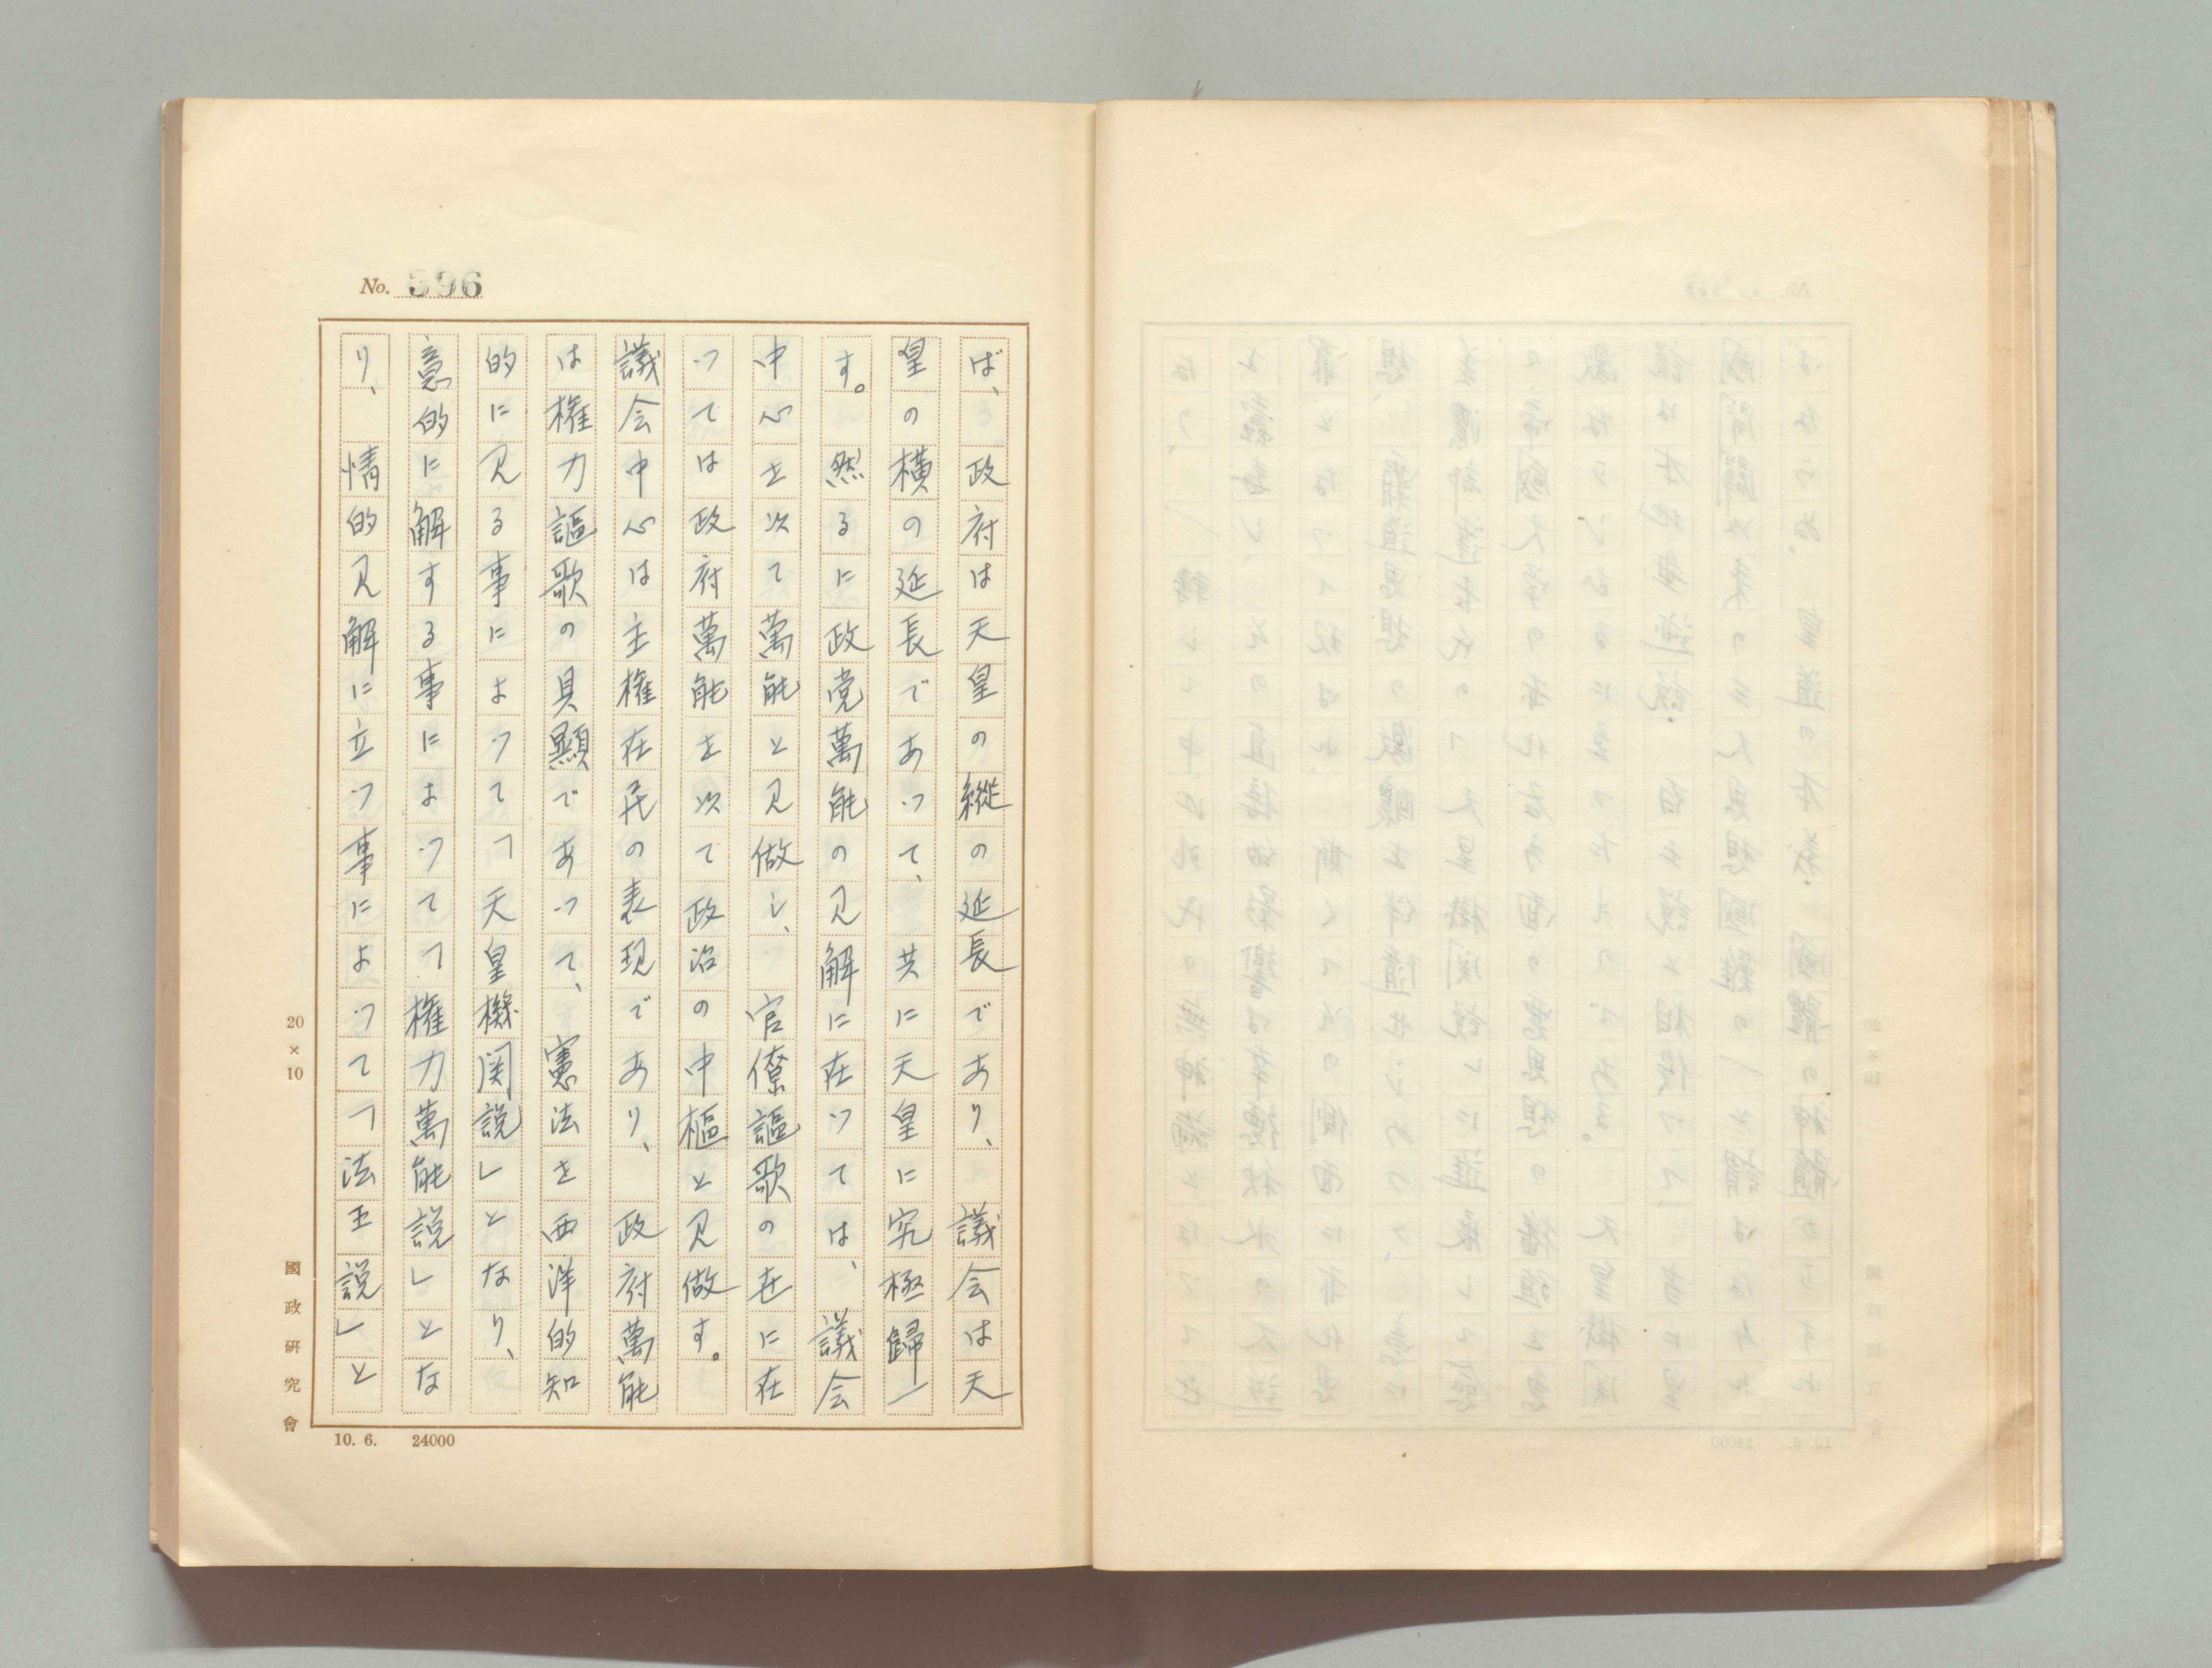 No. 396
ば、政府は天皇の縦の延長であり、議会は天
皇の横の延長であって、共に天皇に究極歸一
す。然るに政党萬能の見解に在っては、議会
中心を以て萬能と見做し、官僚謳歌の世に在
っては政府萬能を以て政治の中樞と見做す。
議会中心は主権在民の表現であり、政府萬能
は権力謳歌の具顯であって、憲法を西洋的知
的に見る事によって「天皇機関説」となり、
意的に解する事によって「権力萬能説」とな
り、情的見解に立つ事によって「法王説」と
20×10
國政研究會
10. 6. 24000